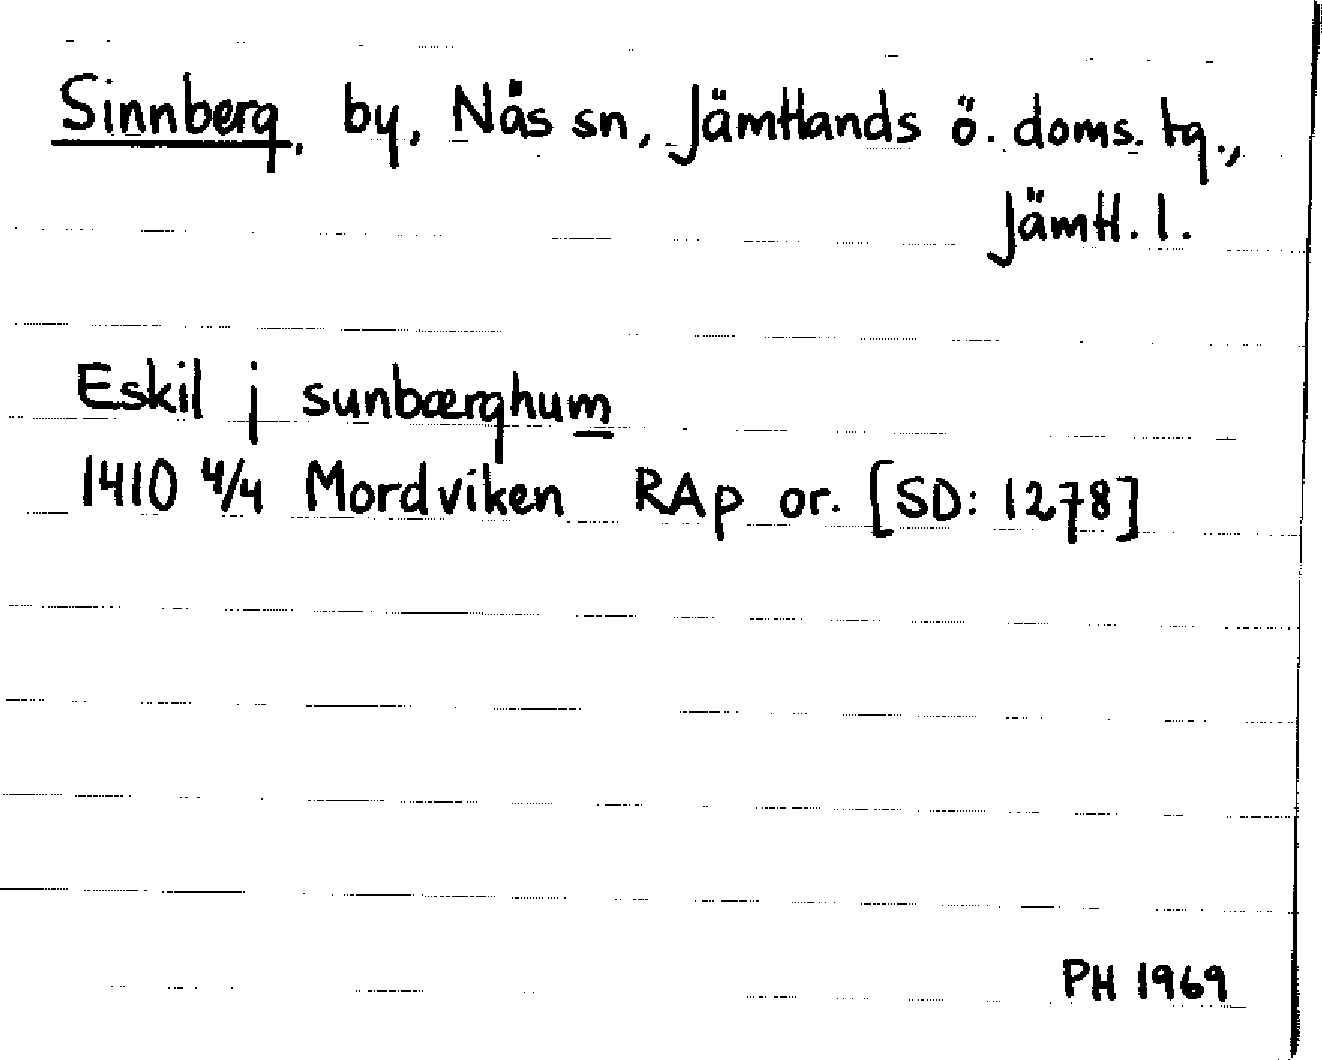 Sinnberg, by, Näs sn, Jämtlands ö. doms. tg.,
Jämtl. l.
Eskil j sunbærghum
1410 4/4 Mordviken RAp or. [SD: 1278]
PH 1969